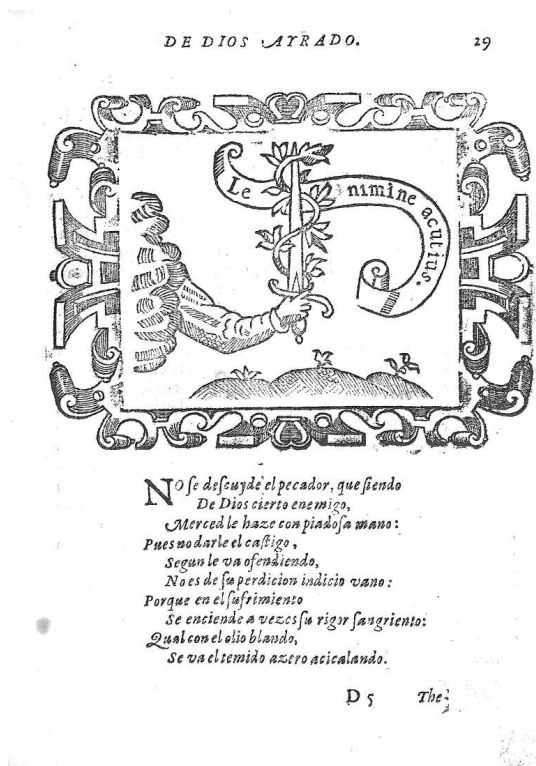 DE DIOS AYRADO. 29
Le nimine acutius.
NO ſe deſcuyde el pecador, que ſiendo
De Dios cierto enemigo,
Merced le haze con piadoſa mano:
Pues no darle el caſtigo,
Segun le va ofendiendo,
No es de ſu perdicion indicio vano:
Porque en el ſufrimiento
Se enciende a vezes ſu rigor ſangriento:
Qual con el olio blando,
Se va el temido azero acicalando.
D 5 The-